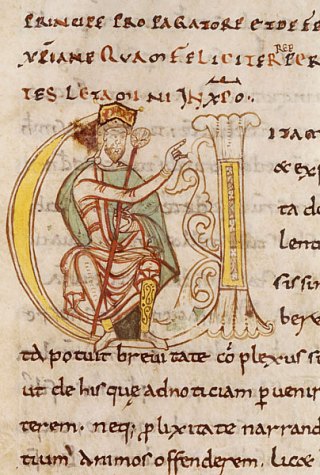 PRINCIPE PROPAGATORE ET DE FE
XPIANE QUAM FELICITER REPER
TES LETAMINI IN XPO.
ITA
& exp
ta do
lenti
sissim
berex
ta potuit breuitate cō plexus s
ut de hisque ad noticiam p̱uenir
terem. neq; ꝓlixitate narrand
tium animos offenderem. licæ